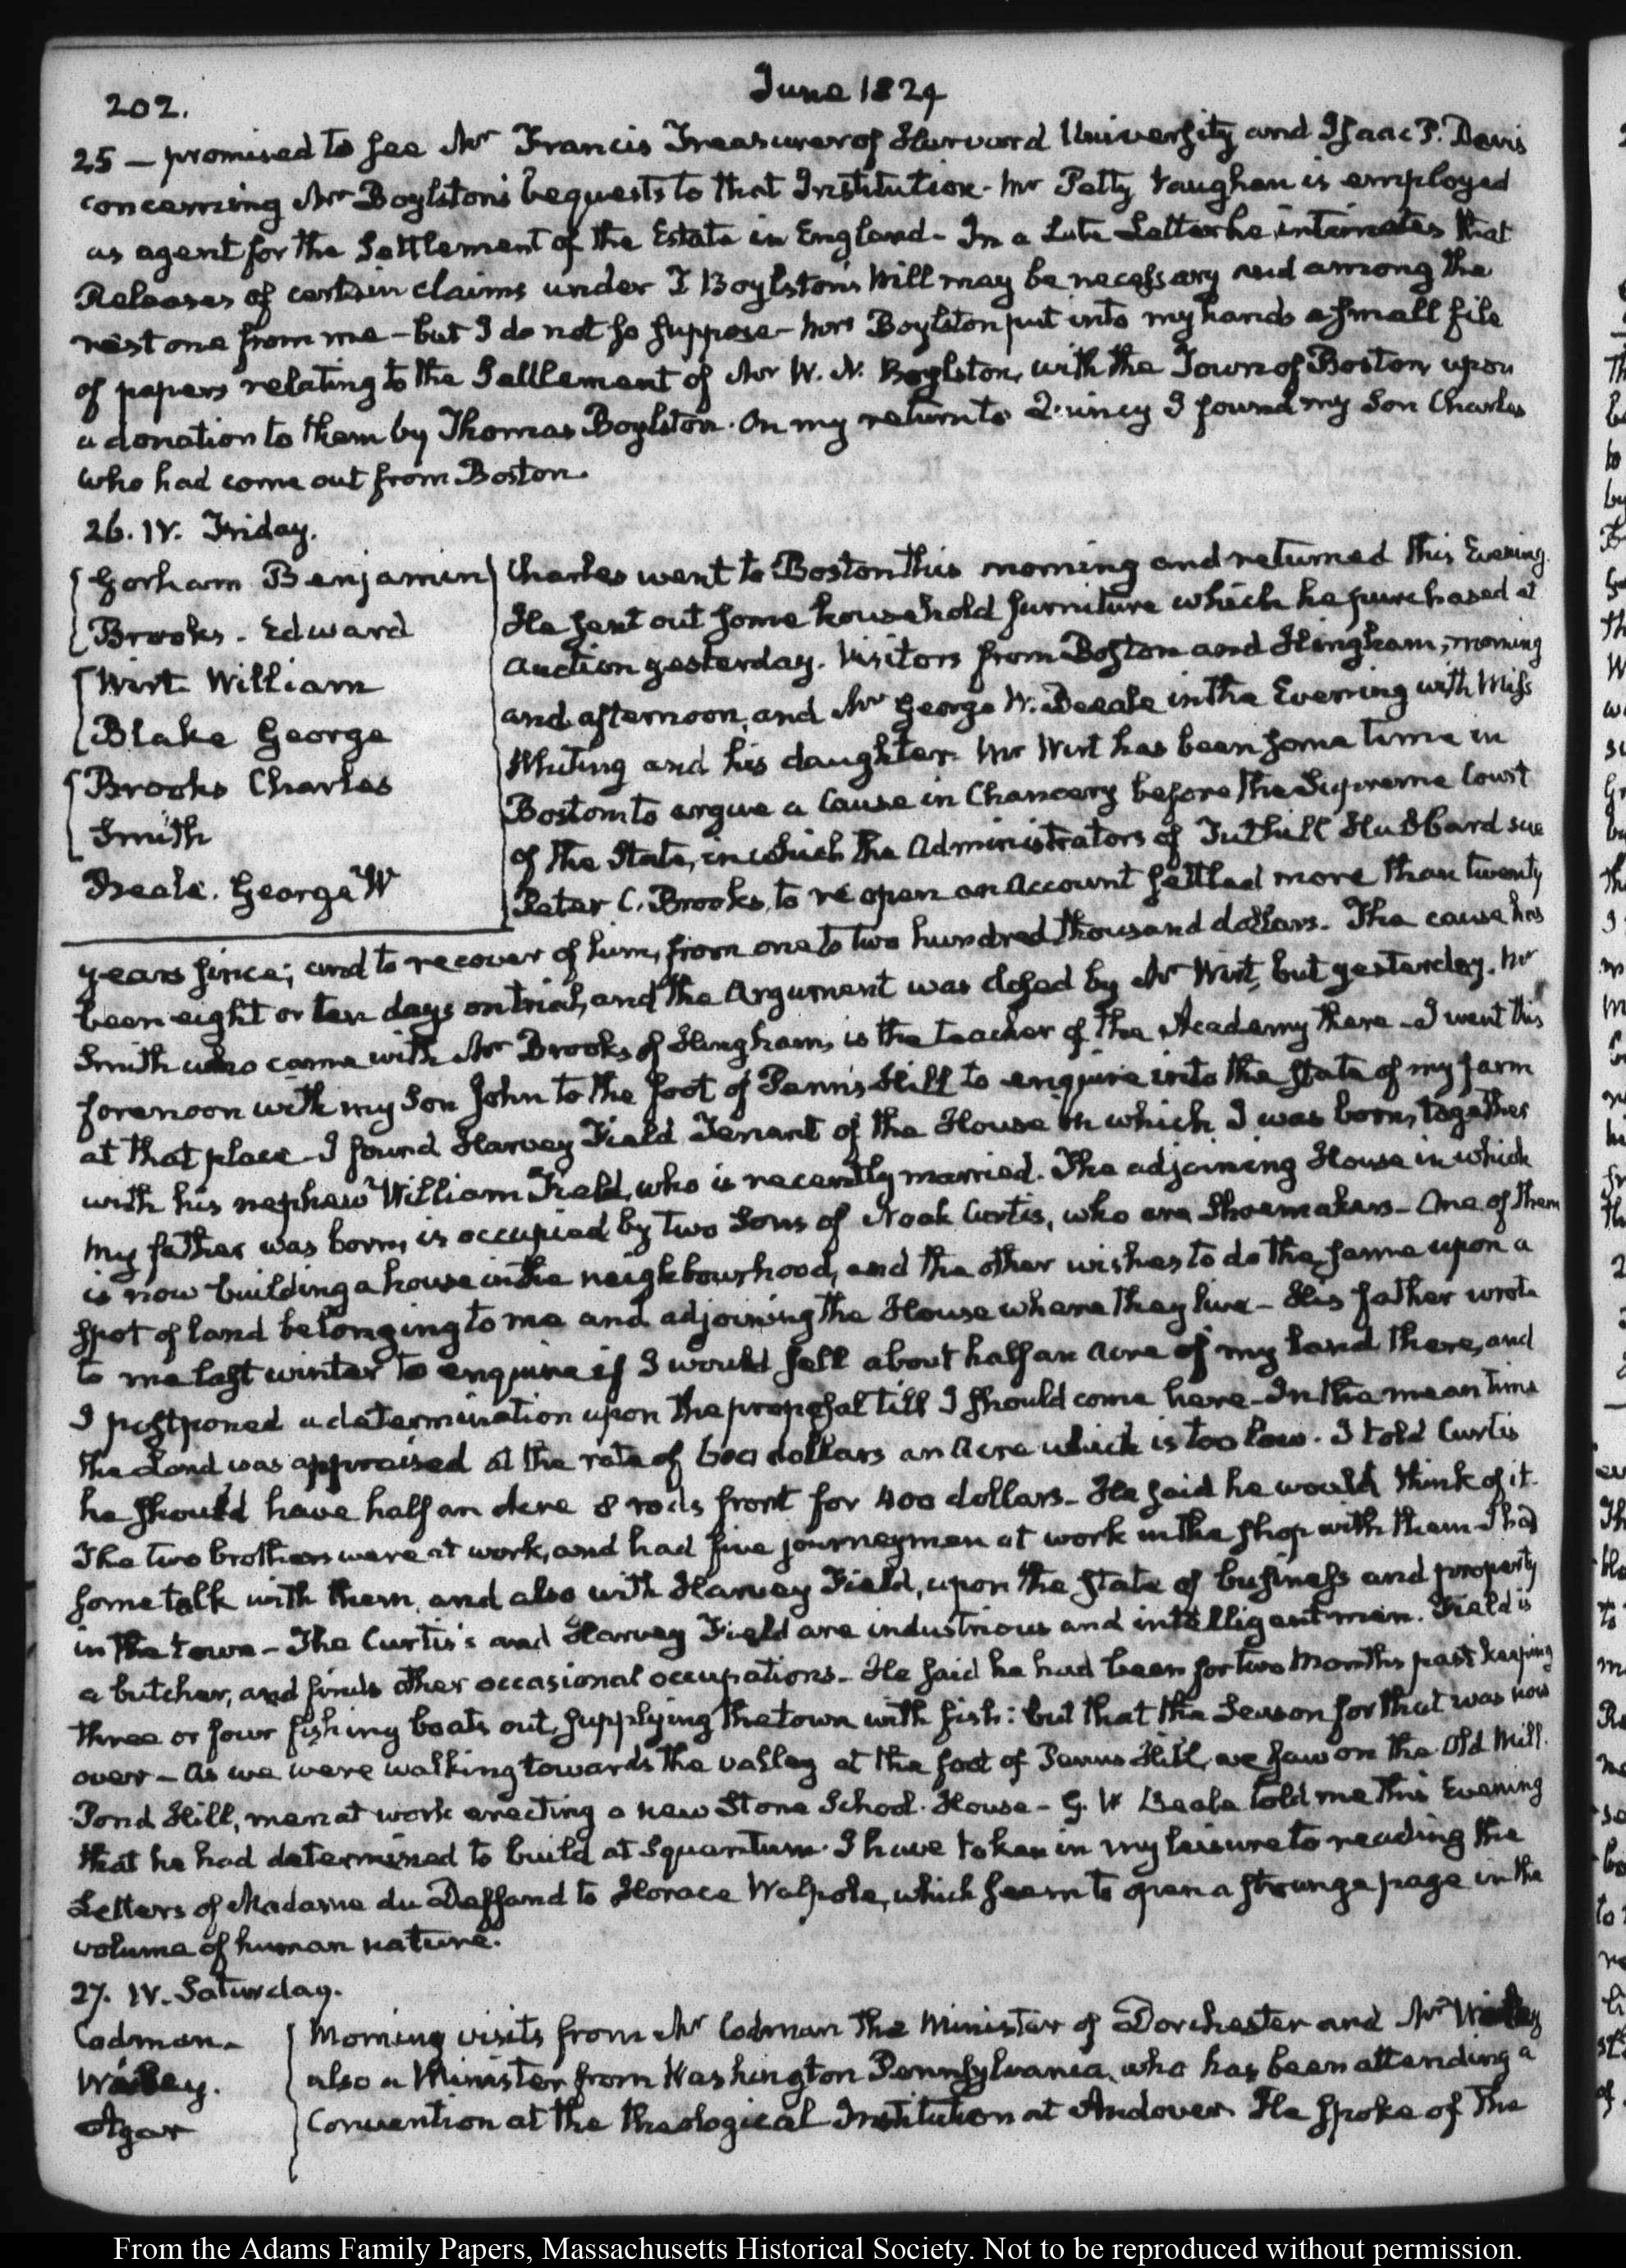 202.
June 1829
25 — promised to see Mr Francis Treasurer of Harvard University and Isaac P. Davis
concerning Mr Boylston's bequests to that Institution - Mr Petty Vaughan is employed
as agent for the Settlement of the Estate in England - In a Late Letter he intimates that
Releases of certain claims under T Boylston's Will may be necessary and among the
rest one from me - but I do not so suppose - Mrs Boylston put into my hands a small file
of papers relating to the Settlement of Mr W. N. Boylston, with the Town of Boston, upon
a donation to them by Thomas Boylston. On my return to Quincy I found my Son Charles
who had come out from Boston.
26. IV. Friday.
Gorham Benjamin
Brooks - Edward
Wirt William
Blake George
Brooks Charles
Smith
Beale. George W
Charles went to Boston this morning and returned this Evening.
He sent out some household furniture which he purchased at
auction yesterday. Visitors from Boston and Hingham, morning
and afternoon, and Mr George W. Beale in the Evening with Miss
Whiting and his daughter. Mr Wirt has been some time in
Boston to argue a Cause in Chancery before the Supreme Court
of the State, in which the Administrators of Tuthill Hubbard sue
Peter C. Brooks, to re open an Account settled more than twenty
years since; and to recover of him, from one to two hundred thousand dollars. The cause has
been eight or ten days on trial, and the Argument was closed by Mr Wirt, but yesterday. Mr
Smith who came with Mr Brooks of Hingham, is the teacher of the Academy there - I went this
forenoon with my Son John to the foot of Penn's Hill to enquire into the state of my farm
at that place - I found Harvey Field Tenant of the House in which I was born, together
with his nephew William Field, who is recently married. The adjoining House in which
my father was born, is occupied by two Sons of Noah Curtis, who are Shoemakers - One of them
is now building a house in the neighbourhood, and the other wishes to do the same upon a
spot of land belonging to me and adjoining the House where they live - His father wrote
to me last winter to enquire if I would sell about half an acre of my land there, and
I postponed a determination upon the proposal till I should come here - In the mean time
the Land was appraised at the rate of 600 dollars an Acre which is too low. I told Curtis
he should have half an Acre 8 rods front for 400 dollars - He said he would think of it.
The two brothers were at work, and had five journeymen at work in the shop with them - I had
some talk with them, and also with Harvey Field, upon the state of business and property
in the town - The Curtis's and Harvey Field are industrious and intelligent men. Field is
a butcher, and finds other occasional occupations - He said he had been for two Months past keeping
three or four fishing boats out, supplying the town with fish: but that the Season for that was now
over - As we were walking towards the valley at the foot of Penns Hill, we saw on the Old Mill
Pond Hill, men at work erecting a new Stone School-House - G. W Beale told me this Evening
that he had determined to build at Squantum. I have taken in my leisure to reading the
Letters of Madame du Deffand to Horace Walpole, which seem to open a strange page in the
volume of human nature.
27. IV. Saturday.
Codman -
Agar
Morning visits from Mr Codman the Minister of Dorchester and Mr
also a Minister from Washington Pennsylvania, who has been attending a
Convention at the theological Institution at Andover. He spoke of the
From the Adams Family Papers, Massachusetts Historical Society. Not to be reproduced without permission.